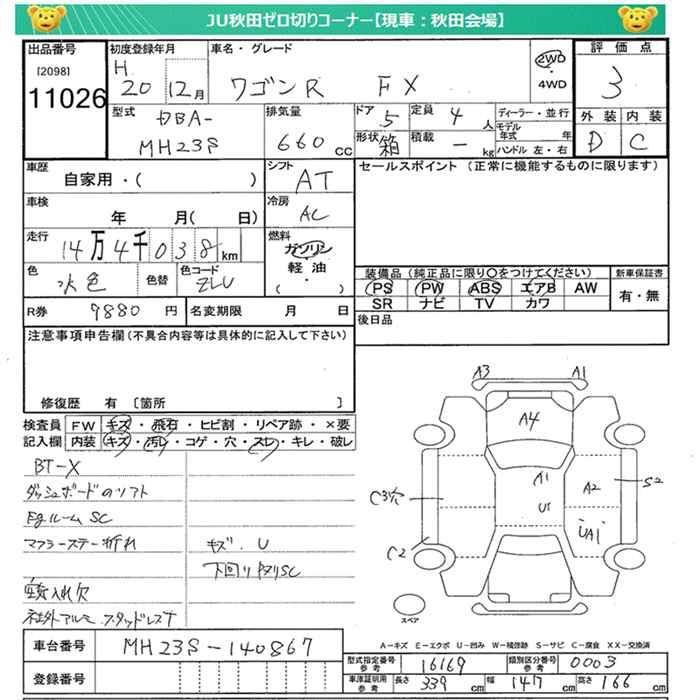 JU秋田ゼロ切りコーナー【現車：秋田会場】
出品番号 初度登録年月 車名・グレード 評価点
[2098] H
11026 20 12月 ワゴンR FX 2WD・4WD 3
型式 DBA-MH23S 排気量 660cc ドア 5 定員 4人 ディーラー・並行 外装 内装
形状 箱 積載 ー kg モデル年式 年 ハンドル 左・右 D C
車歴 自家用・( ) シフト AT セールスポイント(正常に機能するものに限ります)
車検 年 月( 日) 冷房 AC
走行 14万4千038km 燃料 ガソリン
色 水色 色替 色コード ZLU 軽油・( )
装備品(純正品に限り○をつけてください) 新車保証書
PS PW ABS エアB AW 有・無
SR ナビ TV カワ
R券 9880円 名変期限 月 日 後日品
注意事項申告欄(不具合内容等は具体的に記入して下さい)
修復歴 有 〔箇所 〕
検査員 FW キズ・飛石・ヒビ割・リペア跡・×要
記入欄 内装 キズ・汚レ・コゲ・穴・スレ・キレ・破レ
BT-X
ダッシュボードのソフト
Egルーム SC
マフラーステー折れ キズ.U
下回りサビSC
空気入れ欠
社外アルミ.スタッドレス
A3 A1
A4
A1
U1
A2
S2
UA1
C3穴
C2
スペア
A－キズ E－エクボ U－凹み W－補修跡 S－サビ C－腐食 XX－交換済
車台番号 MH23S-140867
登録番号
型式指定番号 参考 16169 類別区分番号 参考 0003
車庫証明用 参考 長さ 339cm 幅 147cm 高さ 166cm